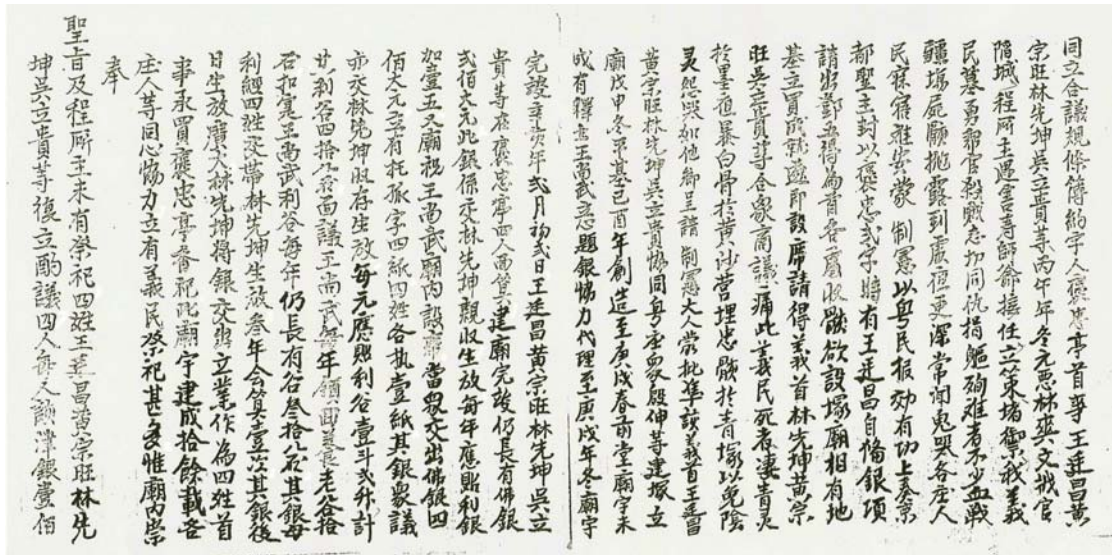 同立合議規條簿約字人褒忠亭首事王廷昌黃
宗旺林先坤吳立貴等丙午年冬元惡林爽文戕官
陷城程所主遇害壽師爺接任立策堵禦我義
民慕勇幫官殺戰志切同仇捐軀殉難者不少血戰
疆場屍骸拋露到處夜更深常聞鬼哭各庄人
民寢寐難安蒙 制憲以粵民報効有功上奏京
都聖主封以褒忠弍字時有王廷昌自備銀項
請出鄧五得為首各處收骸欲設塚廟相有地
基立買成就遂即設席請得義首林先坤黃宗
旺吳立貴等合眾商議痛此義民死者淒青灵
於墨夜暴白骨於黃沙當埋忠骸於青塚以免陰
灵怨哭如他鄉呈請 制憲大人蒙批準該義首王廷昌
黃宗旺林先坤吳立貴協同粵庄眾殷紳等建塚立
廟戊申冬平基己酉年創造至庚戌春前堂廟宇未
成有釋士王尚武立意題銀協力代理至庚戌年冬廟宇
完竣辛亥年弍月初弍日王廷昌黃宗旺林先坤吳立
貴等在褒忠亭四人面算建廟完竣仍長有佛銀
弍佰大元此銀係交林先坤親收生放每年應貼利銀
加壹五又廟祝王尚武廟內設席當眾交出佛銀四
佰大元立有托孤字四紙四姓各執壹紙其銀眾議
亦交林先坤收存生放每元應貼利谷壹斗弍升計
共利谷四拾八石面議王尚武每年領回養老谷拾
石扣完王尚武利谷每年仍長有谷叁拾八石其銀每
利經四姓交帶林先坤生放叁年會算壹次其銀後
日生放廣大林先坤將銀交出立業作為四姓首
事承買褒忠亭香祀此廟宇建成拾餘載各
庄人等同心協力立有義民祭祀甚多惟廟內崇
奉
聖旨及程所主未有祭祀四姓王廷昌黃宗旺林先
坤吳立貴等復立酌議四人每人願津銀壹佰